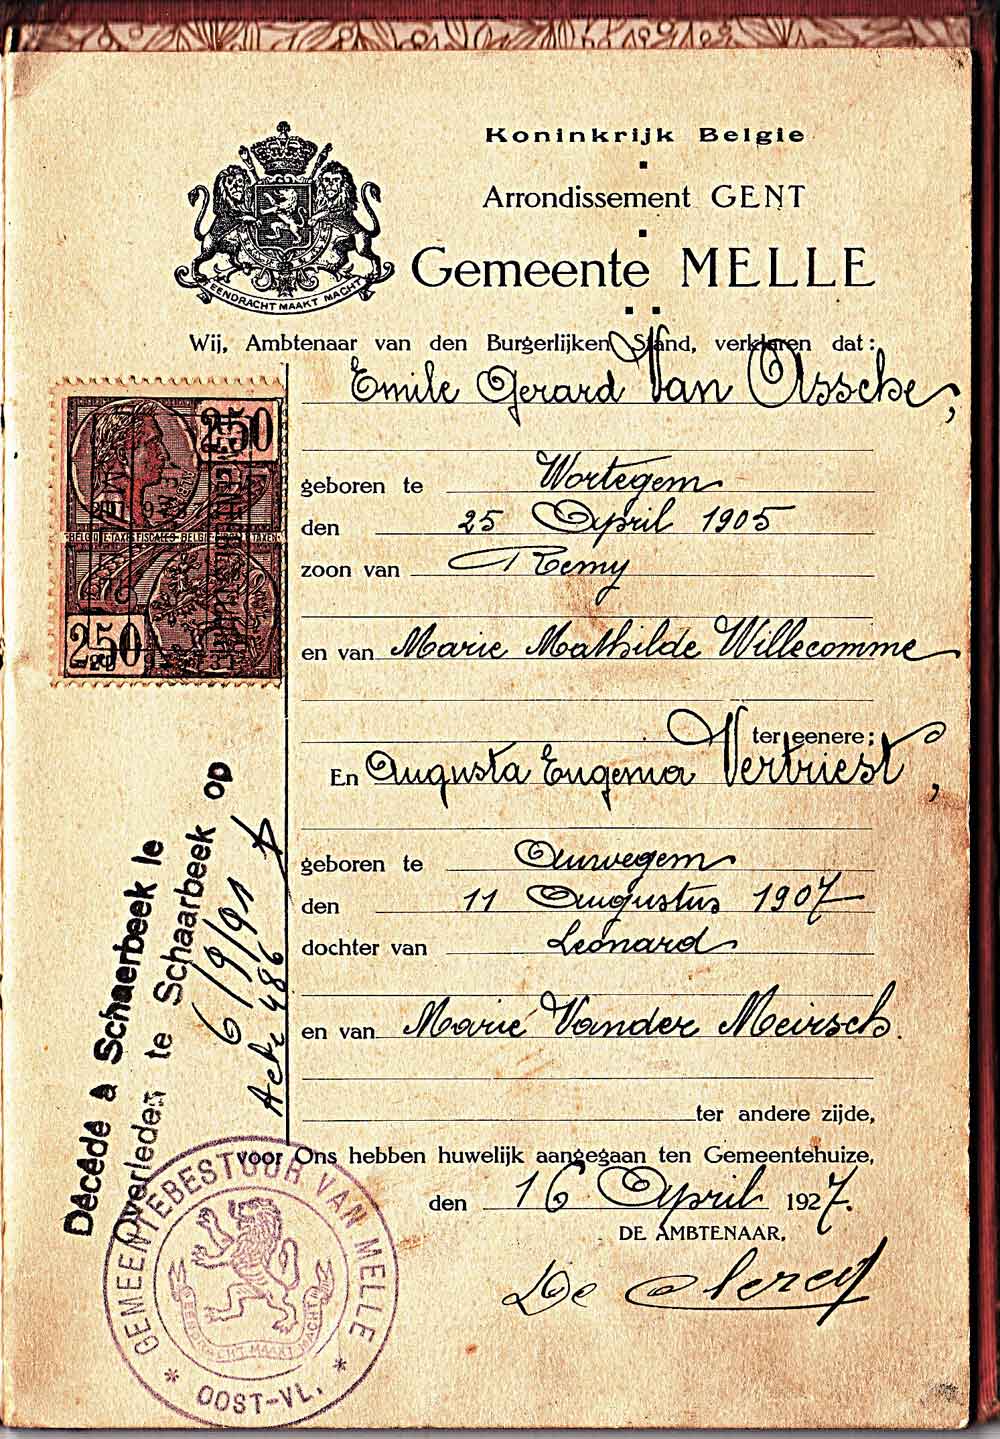 Koninkrijk Belgie
Arrondissement GENT
Gemeente MELLE
EENDRACHT MAAKT MACHT
Wij, Ambtenaar van den Burgerlijken Stand, verklaren dat:
Emile Gerard Van Assche,
geboren te Wortegem
den 25 April 1905
zoon van Remy
en van Marie Mathilde Willecomme
ter eenere;
En Augusta Eugenia Vertriest,
geboren te Ouwegem
den 11 Augustus 1907
dochter van Leonard
en van Marie Vander Meirsch.
ter andere zijde,
voor Ons hebben huwelijk aangegaan ten Gemeentehuize,
den 16 April 1927.
DE AMBTENAAR,
De Clercq
250
TAXES FISCALES
250
Décédé à Schaerbeek le
Overleden te Schaarbeek op
6/9/91
Acte 486
GEMEENTEBESTUUR VAN MELLE
EENDRACHT MAAKT MACHT
* OOST-VL. *